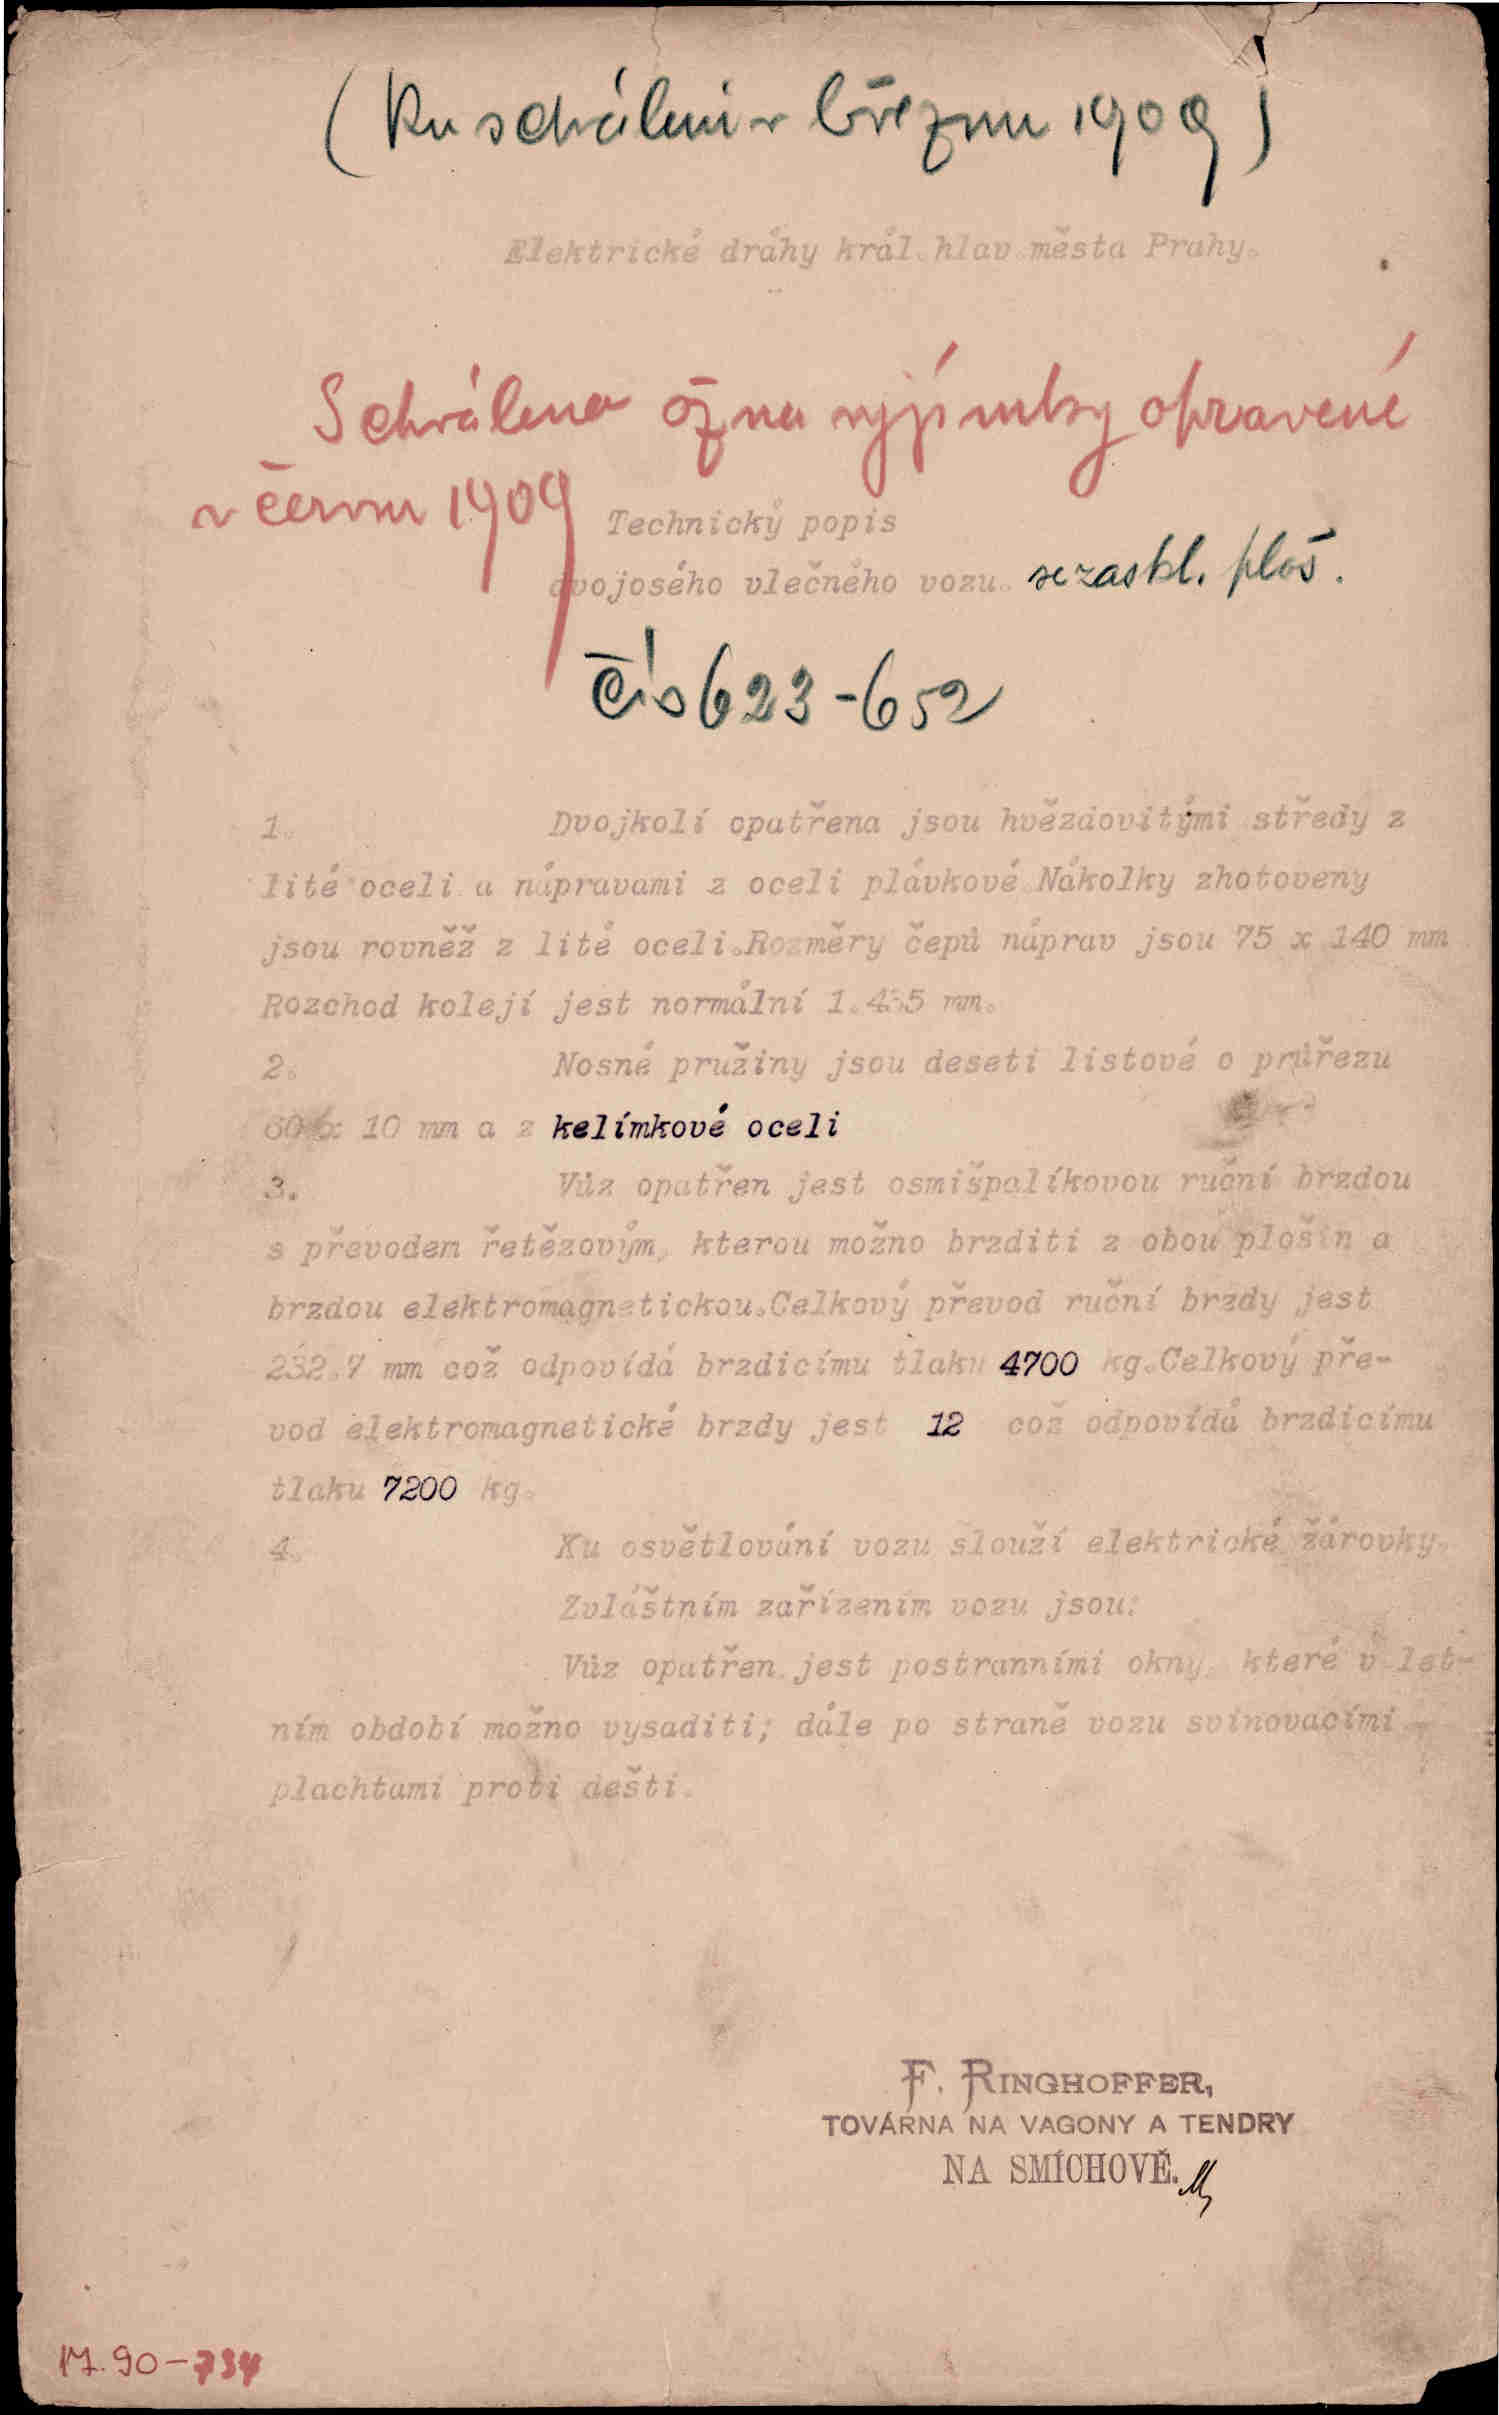 (Ku schválení v březnu 1909)
Elektrické dráhy král.hlav.města Prahy.
Schválena až na výjimky opravené
v červnu 1909
Technický popis
dvojosého vlečného vozu. se zaskl. ploš.
Čís 623-652
1. Dvojkolí opatřena jsou hvězdovitými středy z
lité oceli a nápravami z oceli plávkové.Nákolky zhotoveny
jsou rovněž z lité oceli.Rozměry čepů náprav jsou 75 x 140 mm
Rozchod kolejí jest normální 1.435 mm.
2. Nosné pružiny jsou deseti listové o průřezu
60 x 10 mm a z kelímkové oceli
3. Vůz opatřen jest osmišpalíkovou ruční brzdou
s převodem řetězovým, kterou možno brzditi z obou plošin a
brzdou elektromagnetickou.Celkový převod ruční brzdy jest
232.7 mm což odpovídá brzdicímu tlaku 4700 kg.Celkový pře-
vod elektromagnetické brzdy jest 12 což odpovídá brzdicímu
tlaku 7200 kg.
4. Ku osvětlování vozu slouží elektrické žárovky.
Zvláštním zařízením vozu jsou:
Vůz opatřen jest postranními okny, které v let-
ním období možno vysaditi; dále po straně vozu svinovacími
plachtami proti dešti.
F. RINGHOFFER,
TOVÁRNA NA VAGONY A TENDRY
NA SMÍCHOVĚ.
17.90-734